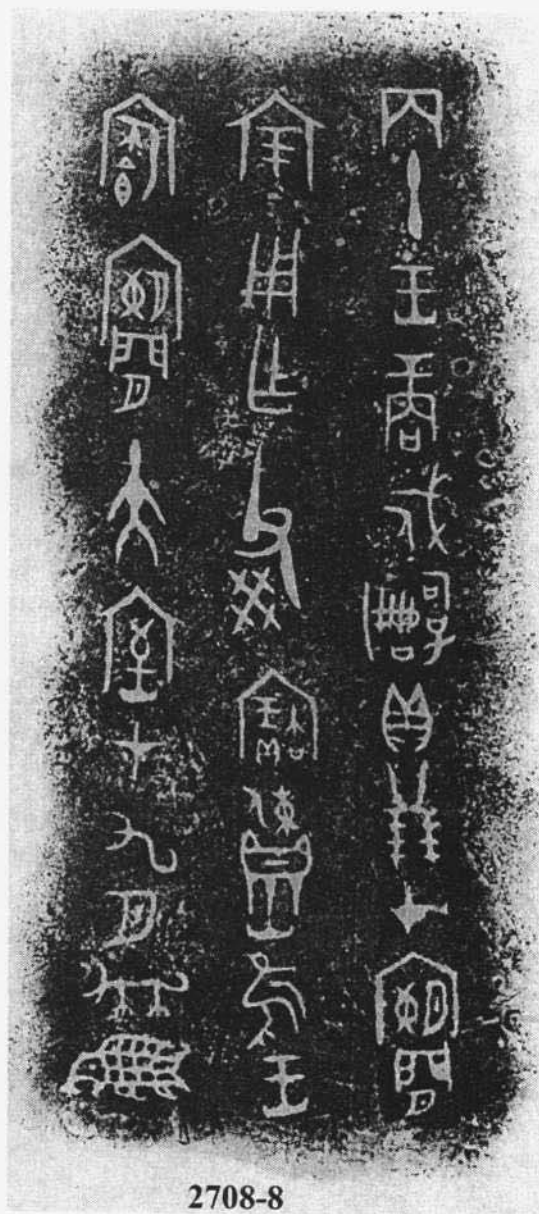 丙午王商戍嗣子貝廿朋才闌
宗用乍父癸寶鼎隹王
闌大室才九月犬魚
2708-8